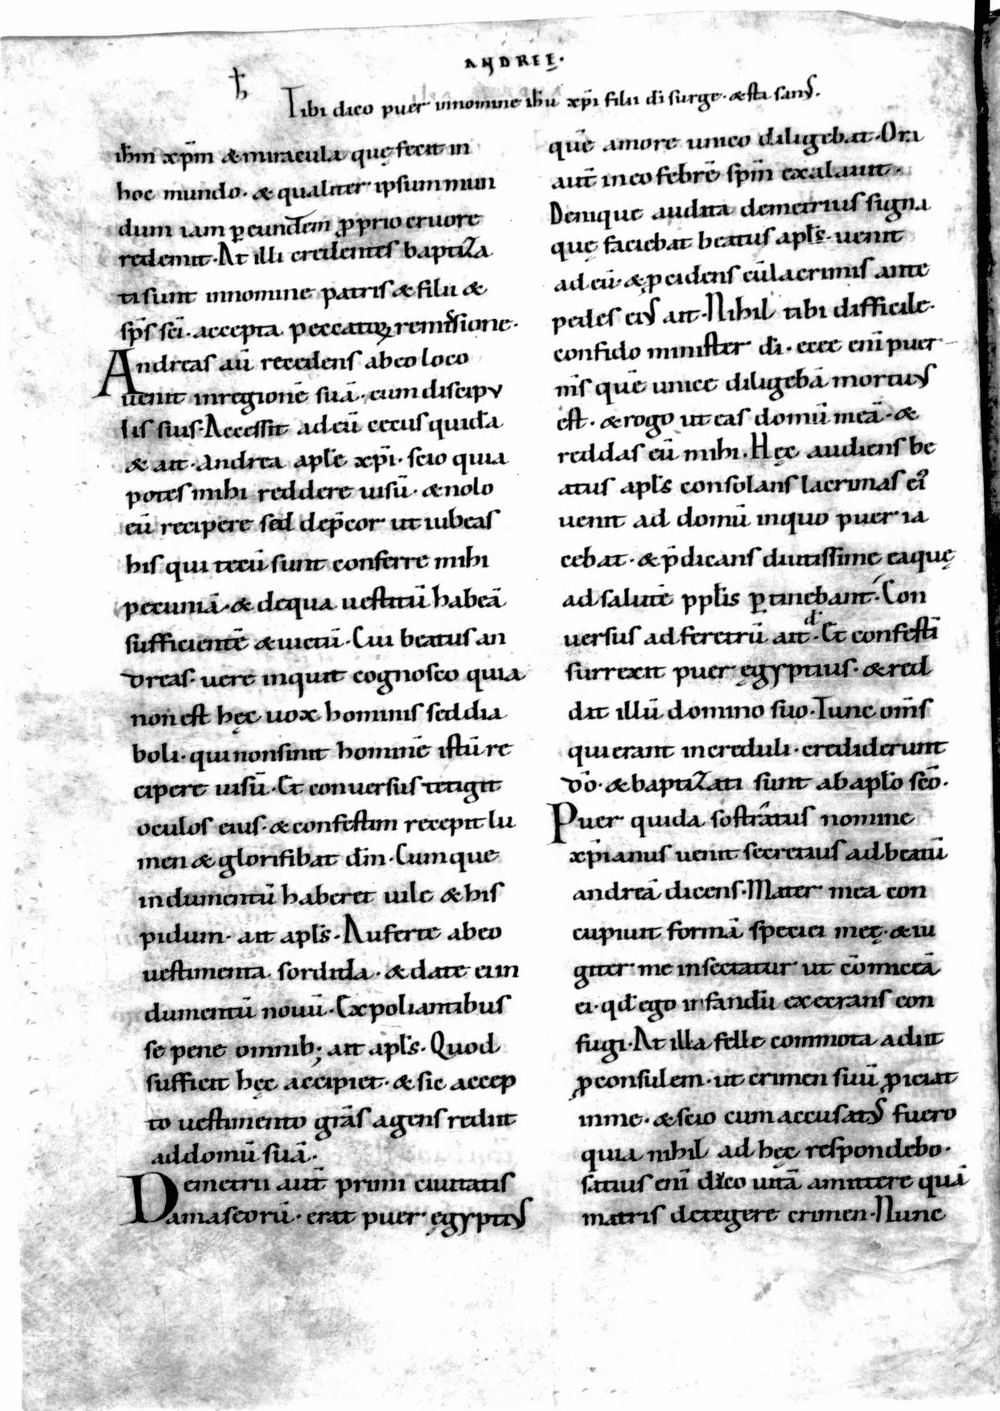 ANDREĘ.
ħ Tibi dico puer innomine ihu xp̄i filii dī surge · & sta sanꝰ.
ihm xp̄m & miracula quę fecit in
hoc mundo · & qualiter ipsum mun
dum iam ꝑ eundem ꝓprio cruore
redemit · At illi credentes baptiza
ti sunt innomine patris & filii &
sp̄s sc̄i · accepta peccatoꝝ remissione ·
Andreas aū recedens abeo loco
uenit inregionē suā · cum discipu
lis suis · Accessit ad eū cecus quidā
& ait · Andrea apłe xp̄i · scio quia
potes mihi reddere uisū · & nolo
eū recipere sed dep̄cor ut iubeas
his qui tecū sunt conferre mihi
pecuniā · & dequa uestitū habeā
sufficientē & uictū · Cui beatus an
dreas · uere inquit cognosco quia
non est hęc uox hominis sed dia
boli · qui non sinit hominē istū re
cipere uisū · Et conuersus tetigit
oculos eius · & confestim recepit lu
men & glorifibat dm̄ · Cumque
indumentū haberet uile & his
pidum · ait apłs · Auferte abeo
uestimenta sordida · & date ei in
dumentū nouū · Expoliantibus
se pene omnib; ait apłs · Quod
sufficit hęc accipiet · & sic accep
to uestimento grās agens rediit
addomū suā ·
Demetrii aut̄ primi ciuitatis
Damascorū · erat puer ęgyptiꝰ
quē amore unico diligebat · Orta
aut̄ in eo febrē spm̄ exalauit ·
Denique audita demetrius signa
que faciebat beatus apłs · uenit
ad eū · & ꝓcidens cū lacrimis ante
pedes eiꝰ ait · Nihil tibi difficile ·
confido minister dī · ecce enī puer
m̄s quē unice diligebā mortuꝰ
est · & rogo ut eas domū meā · &
reddas eū mihi · Hęc audiens be
atus apłs consolans lacrimas eiꝰ
uenit ad domū inquo puer ia
cebat · & p̄dicans diutissime eaquę
ad salutē ppłis ꝑtinebant · Con
uersus ad feretrū ait · d · Et confestī
surrexit puer ęgyptius · & red
dit illū domino suo · Tunc om̄s
qui erant increduli · crediderunt
dō · & baptizati sunt ab apło scō ·
Puer quida sostratus nomine
xp̄ianus uenit secretius ad beatū
andreā dicens · Mater mea con
cupiuit formā speciei meę · & iu
giter me insectatur ut cōmiceā
ei · qd ego infandū execrans con
fugi · At illa felle commota adiit
ꝓconsulem · ut crimen suū ꝓiciat
inme · & scio cum accusatꝰ fuero
quia nihil ad hęc respondebo ·
satius enī duco uitā amittere quā
matris detegere crimen · Nunc